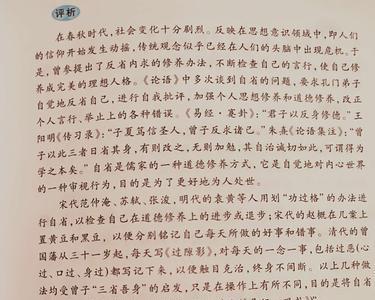 评析
在春秋时代，社会变化十分剧烈。反映在思想意识领域中，即人们
的信仰开始发生动摇，传统观念似乎已经在人们的头脑中出现危机。于
是，曾参提出了反省内求的修养办法，不断检查自己的言行，使自己修
养成完美的理想人格。《论语》中多次谈到自省的问题，要求孔门弟子
自觉地反省自己，进行自我批评，加强个人思想修养和道德修养，改正
个人言行、举止上的各种错误。《易经·蹇卦》：“君子以反身修德。”王
阳明《传习录》：“子夏笃信圣人，曾子反求诸己。”朱熹《论语集注》：“曾
子以此三者日省其身，有则改之，无则加勉，其自治诚切如此，可谓得为
学之本矣。”自省是儒家的一种道德修养方式，它是自觉地对内心世界
的一种审视行为，目的是为了更好地为人处世。
宋代范仲淹、苏轼、张浚，明代的袁黄等人用划“功过格”的办法进
行自省，以检查自己在道德修养上的进步或退步；宋代的赵概在几案上
置黄豆和黑豆，以便分别铭记自己每天所做的好事和错事。清代的曾
国藩从三十一岁起，每天写《过隙影》，对每天的一念一事，包括过恶（心
过、口过、身过）都写记下来，以便触目克治，终身不间断。以上几种做
法均受曾子“三省吾身”的启发，只是在操作上有所不同，目的是将自省